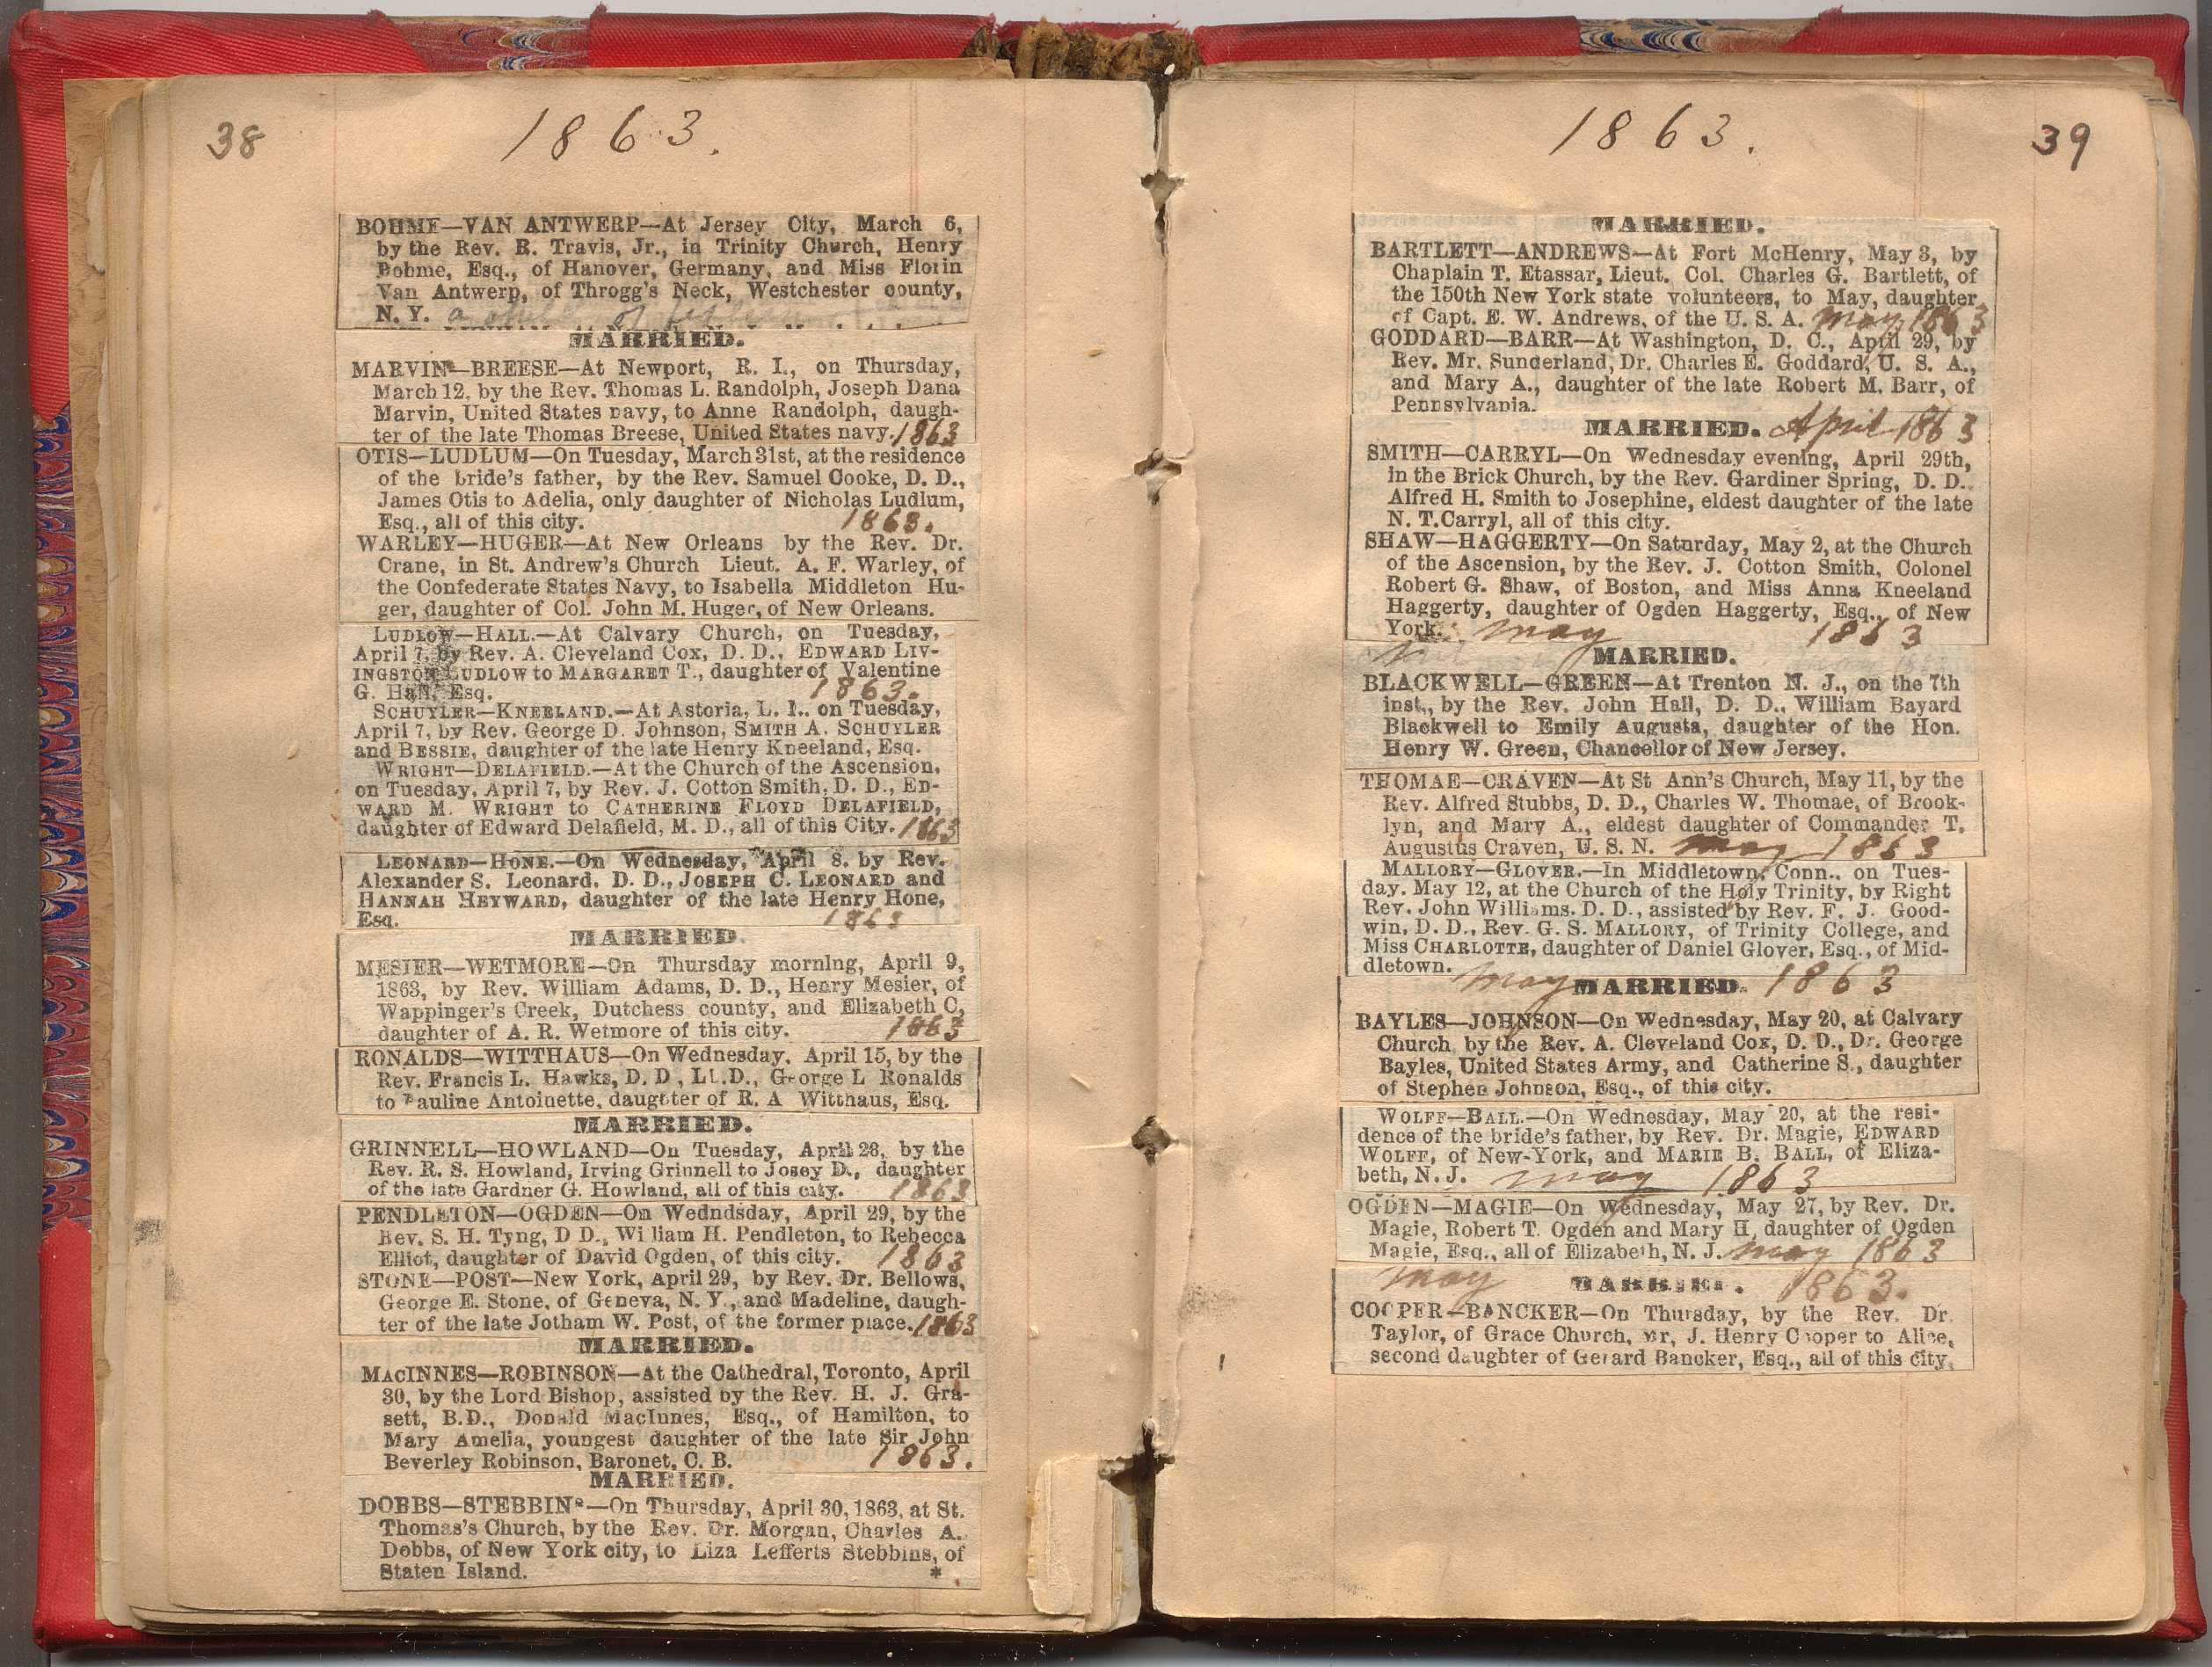 38
1863.
BOHME—VAN ANTWERP—At Jersey City, March 6,
by the Rev. R. Travis, Jr., in Trinity Church, Henry
Bohme, Esq., of Hanover, Germany, and Miss Florin
Van Antwerp, of Throgg's Neck, Westchester county,
N. Y. a of
MARRIED.
MARVIN—BREESE—At Newport, R. I., on Thursday,
March 12, by the Rev. Thomas L. Randolph, Joseph Dana
Marvin, United States navy, to Anne Randolph, daugh-
ter of the late Thomas Breese, United States navy. 1863
OTIS—LUDLUM—On Tuesday, March 31st, at the residence
of the bride's father, by the Rev. Samuel Cooke, D. D.,
James Otis to Adelia, only daughter of Nicholas Ludlum,
Esq., all of this city. 1863.
WARLEY—HUGER—At New Orleans by the Rev. Dr.
Crane, in St. Andrew's Church Lieut. A. F. Warley, of
the Confederate States Navy, to Isabella Middleton Hu-
ger, daughter of Col. John M. Huger, of New Orleans.
LUDLOW—HALL.—At Calvary Church, on Tuesday,
April 7, by Rev. A. Cleveland Cox, D. D., EDWARD LIV-
INGSTON LUDLOW to MARGARET T., daughter of Valentine
G. Hall, Esq. 1863.
SCHUYLER—KNEELAND.—At Astoria, L. I., on Tuesday,
April 7, by Rev. George D. Johnson, SMITH A. SCHUYLER
and BESSIE, daughter of the late Henry Kneeland, Esq.
WRIGHT—DELAFIELD.—At the Church of the Ascension,
on Tuesday, April 7, by Rev. J. Cotton Smith, D. D., ED-
WARD M. WRIGHT to CATHERINE FLOYD DELAFIELD,
daughter of Edward Delafield, M. D., all of this City. 1863
LEONARD—HONE.—On Wednesday, April 8, by Rev.
Alexander S. Leonard, D. D., JOSEPH C. LEONARD and
HANNAH HEYWARD, daughter of the late Henry Hone,
Esq. 1863
MARRIED.
MESIER—WETMORE—On Thursday morning, April 9,
1863, by Rev. William Adams, D. D., Henry Mesier, of
Wappinger's Creek, Dutchess county, and Elizabeth C,
daughter of A. R. Wetmore of this city. 1863
RONALDS—WITTHAUS—On Wednesday, April 15, by the
Rev. Francis L. Hawks, D. D, LL.D., George L Ronalds
to Pauline Antoinette, daughter of R. A Witthaus, Esq.
MARRIED.
GRINNELL—HOWLAND—On Tuesday, April 28, by the
Rev. R. S. Howland, Irving Grinnell to Josey D., daughter
of the late Gardner G. Howland, all of this city. 1863
PENDLETON—OGDEN—On Wedndsday, April 29, by the
Rev. S. H. Tyng, D D., William H. Pendleton, to Rebecca
Elliot, daughter of David Ogden, of this city. 1863
STONE—POST—New York, April 29, by Rev. Dr. Bellows,
George E. Stone, of Geneva, N. Y., and Madeline, daugh-
ter of the late Jotham W. Post, of the former place. 1863
MARRIED.
MACINNES—ROBINSON—At the Cathedral, Toronto, April
30, by the Lord Bishop, assisted by the Rev. H. J. Gra-
sett, B.D., Donald MacInnes, Esq., of Hamilton, to
Mary Amelia, youngest daughter of the late Sir John
Beverley Robinson, Baronet, C. B. 1863.
MARRIED.
DOBBS—STEBBINS—On Thursday, April 30, 1863, at St.
Thomas's Church, by the Rev. Dr. Morgan, Charles A.
Dobbs, of New York city, to Liza Lefferts Stebbins, of
Staten Island. *
1863.
39
MARRIED.
BARTLETT—ANDREWS—At Fort McHenry, May 3, by
Chaplain T. Etassar, Lieut. Col. Charles G. Bartlett, of
the 150th New York state volunteers, to May, daughter
of Capt. E. W. Andrews, of the U. S. A. May 1863
GODDARD—BARR—At Washington, D. C., April 29, by
Rev. Mr. Sunderland, Dr. Charles E. Goddard, U. S. A.,
and Mary A., daughter of the late Robert M. Barr, of
Pennsylvania.
MARRIED. April 1863
SMITH—CARRYL—On Wednesday evening, April 29th,
in the Brick Church, by the Rev. Gardiner Spring, D. D.
Alfred H. Smith to Josephine, eldest daughter of the late
N. T. Carryl, all of this city.
SHAW—HAGGERTY—On Saturday, May 2, at the Church
of the Ascension, by the Rev. J. Cotton Smith, Colonel
Robert G. Shaw, of Boston, and Miss Anna Kneeland
Haggerty, daughter of Ogden Haggerty, Esq., of New
York. May 1863
MARRIED.
BLACKWELL—GREEN—At Trenton N. J., on the 7th
inst., by the Rev. John Hall, D. D., William Bayard
Blackwell to Emily Augusta, daughter of the Hon.
Henry W. Green, Chancellor of New Jersey.
THOMAE—CRAVEN—At St Ann's Church, May 11, by the
Rev. Alfred Stubbs, D. D., Charles W. Thomae, of Brook-
lyn, and Mary A., eldest daughter of Commander T.
Augustus Craven, U. S. N. May 1863
MALLORY—GLOVER.—In Middletown, Conn., on Tues-
day, May 12, at the Church of the Holy Trinity, by Right
Rev. John Williams, D. D., assisted by Rev. F. J. Good-
win, D. D., Rev. G. S. MALLORY, of Trinity College, and
Miss CHARLOTTE, daughter of Daniel Glover, Esq., of Mid-
dletown.
May MARRIED. 1863
BAYLES—JOHNSON—On Wednesday, May 20, at Calvary
Church by the Rev. A. Cleveland Cox, D. D., Dr. George
Bayles, United States Army, and Catherine S., daughter
of Stephen Johnson, Esq., of this city.
WOLFF—BALL.—On Wednesday, May 20, at the resi-
dence of the bride's father, by Rev. Dr. Magie, EDWARD
WOLFF, of New-York, and MARIE B. BALL, of Eliza-
beth, N. J. May 1863
OGDEN—MAGIE—On Wednesday, May 27, by Rev. Dr.
Magie, Robert T. Ogden and Mary H, daughter of Ogden
Magie, Esq., all of Elizabeth, N. J. May 1863
May MARRIED. 1863.
COOPER—BANCKER—On Thursday, by the Rev. Dr
Taylor, of Grace Church, Mr, J. Henry Cooper to Alice,
second daughter of Gerard Bancker, Esq., all of this city,